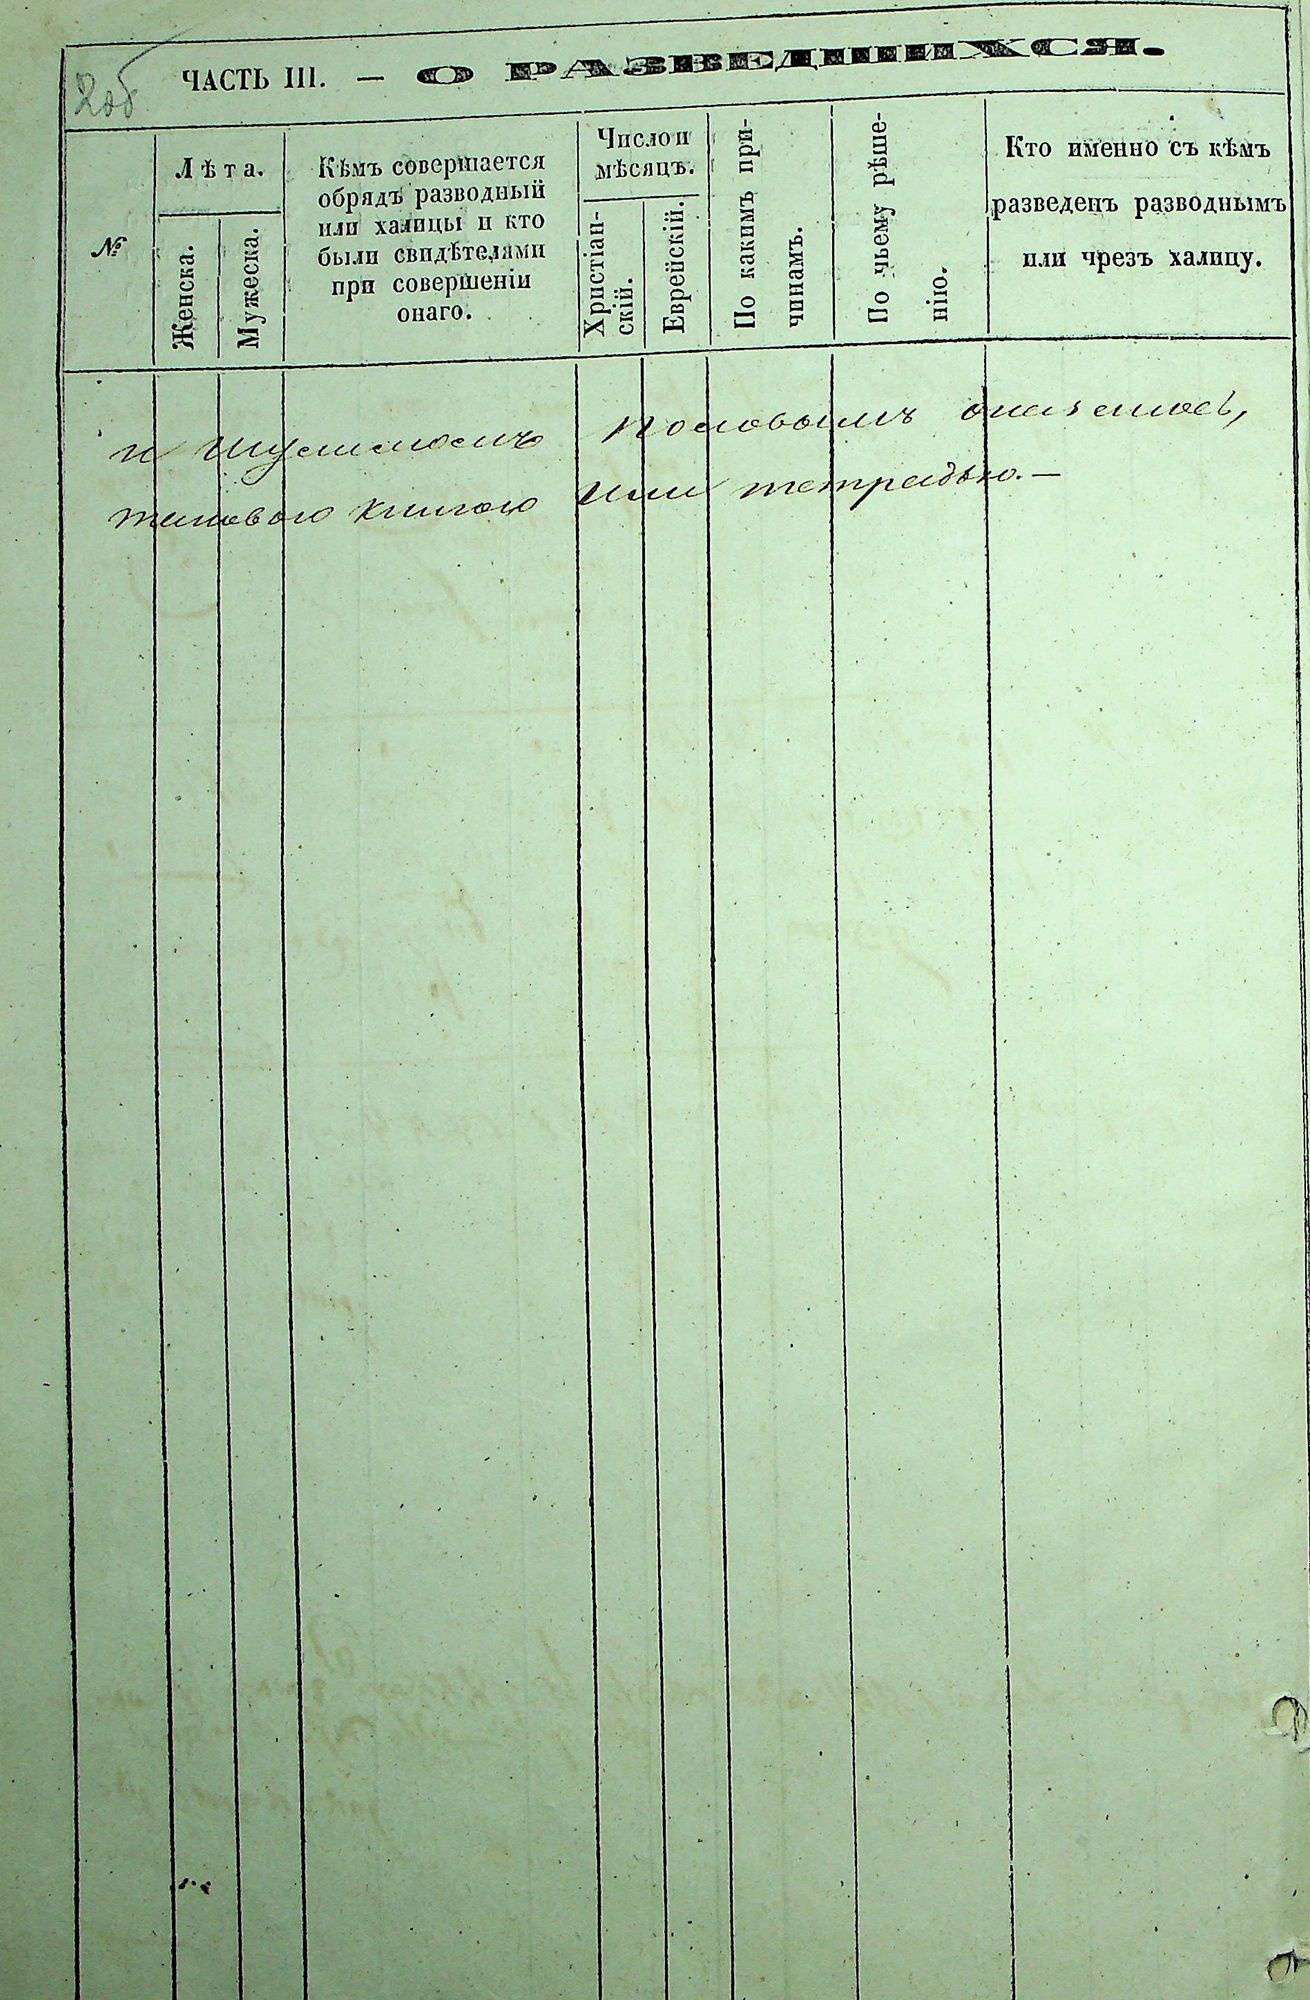 2об
ЧАСТЬ III. — О РАЗВЕДШИХСЯ.
№
Лѣта.
Женска.
Мужеска.
Кѣмъ совершается
обрядъ разводный
или халицы и кто
были свидѣтелями
при совершеніи
онаго.
Число и
мѣсяцъ.
Христіан-
скій.
Еврейскій.
По какимъ при-
чинамъ.
По чьему рѣше-
нію.
Кто именно съ кѣмъ
разведенъ разводнымъ
или чрезъ халицу.
и
книгою или тетрадью.—